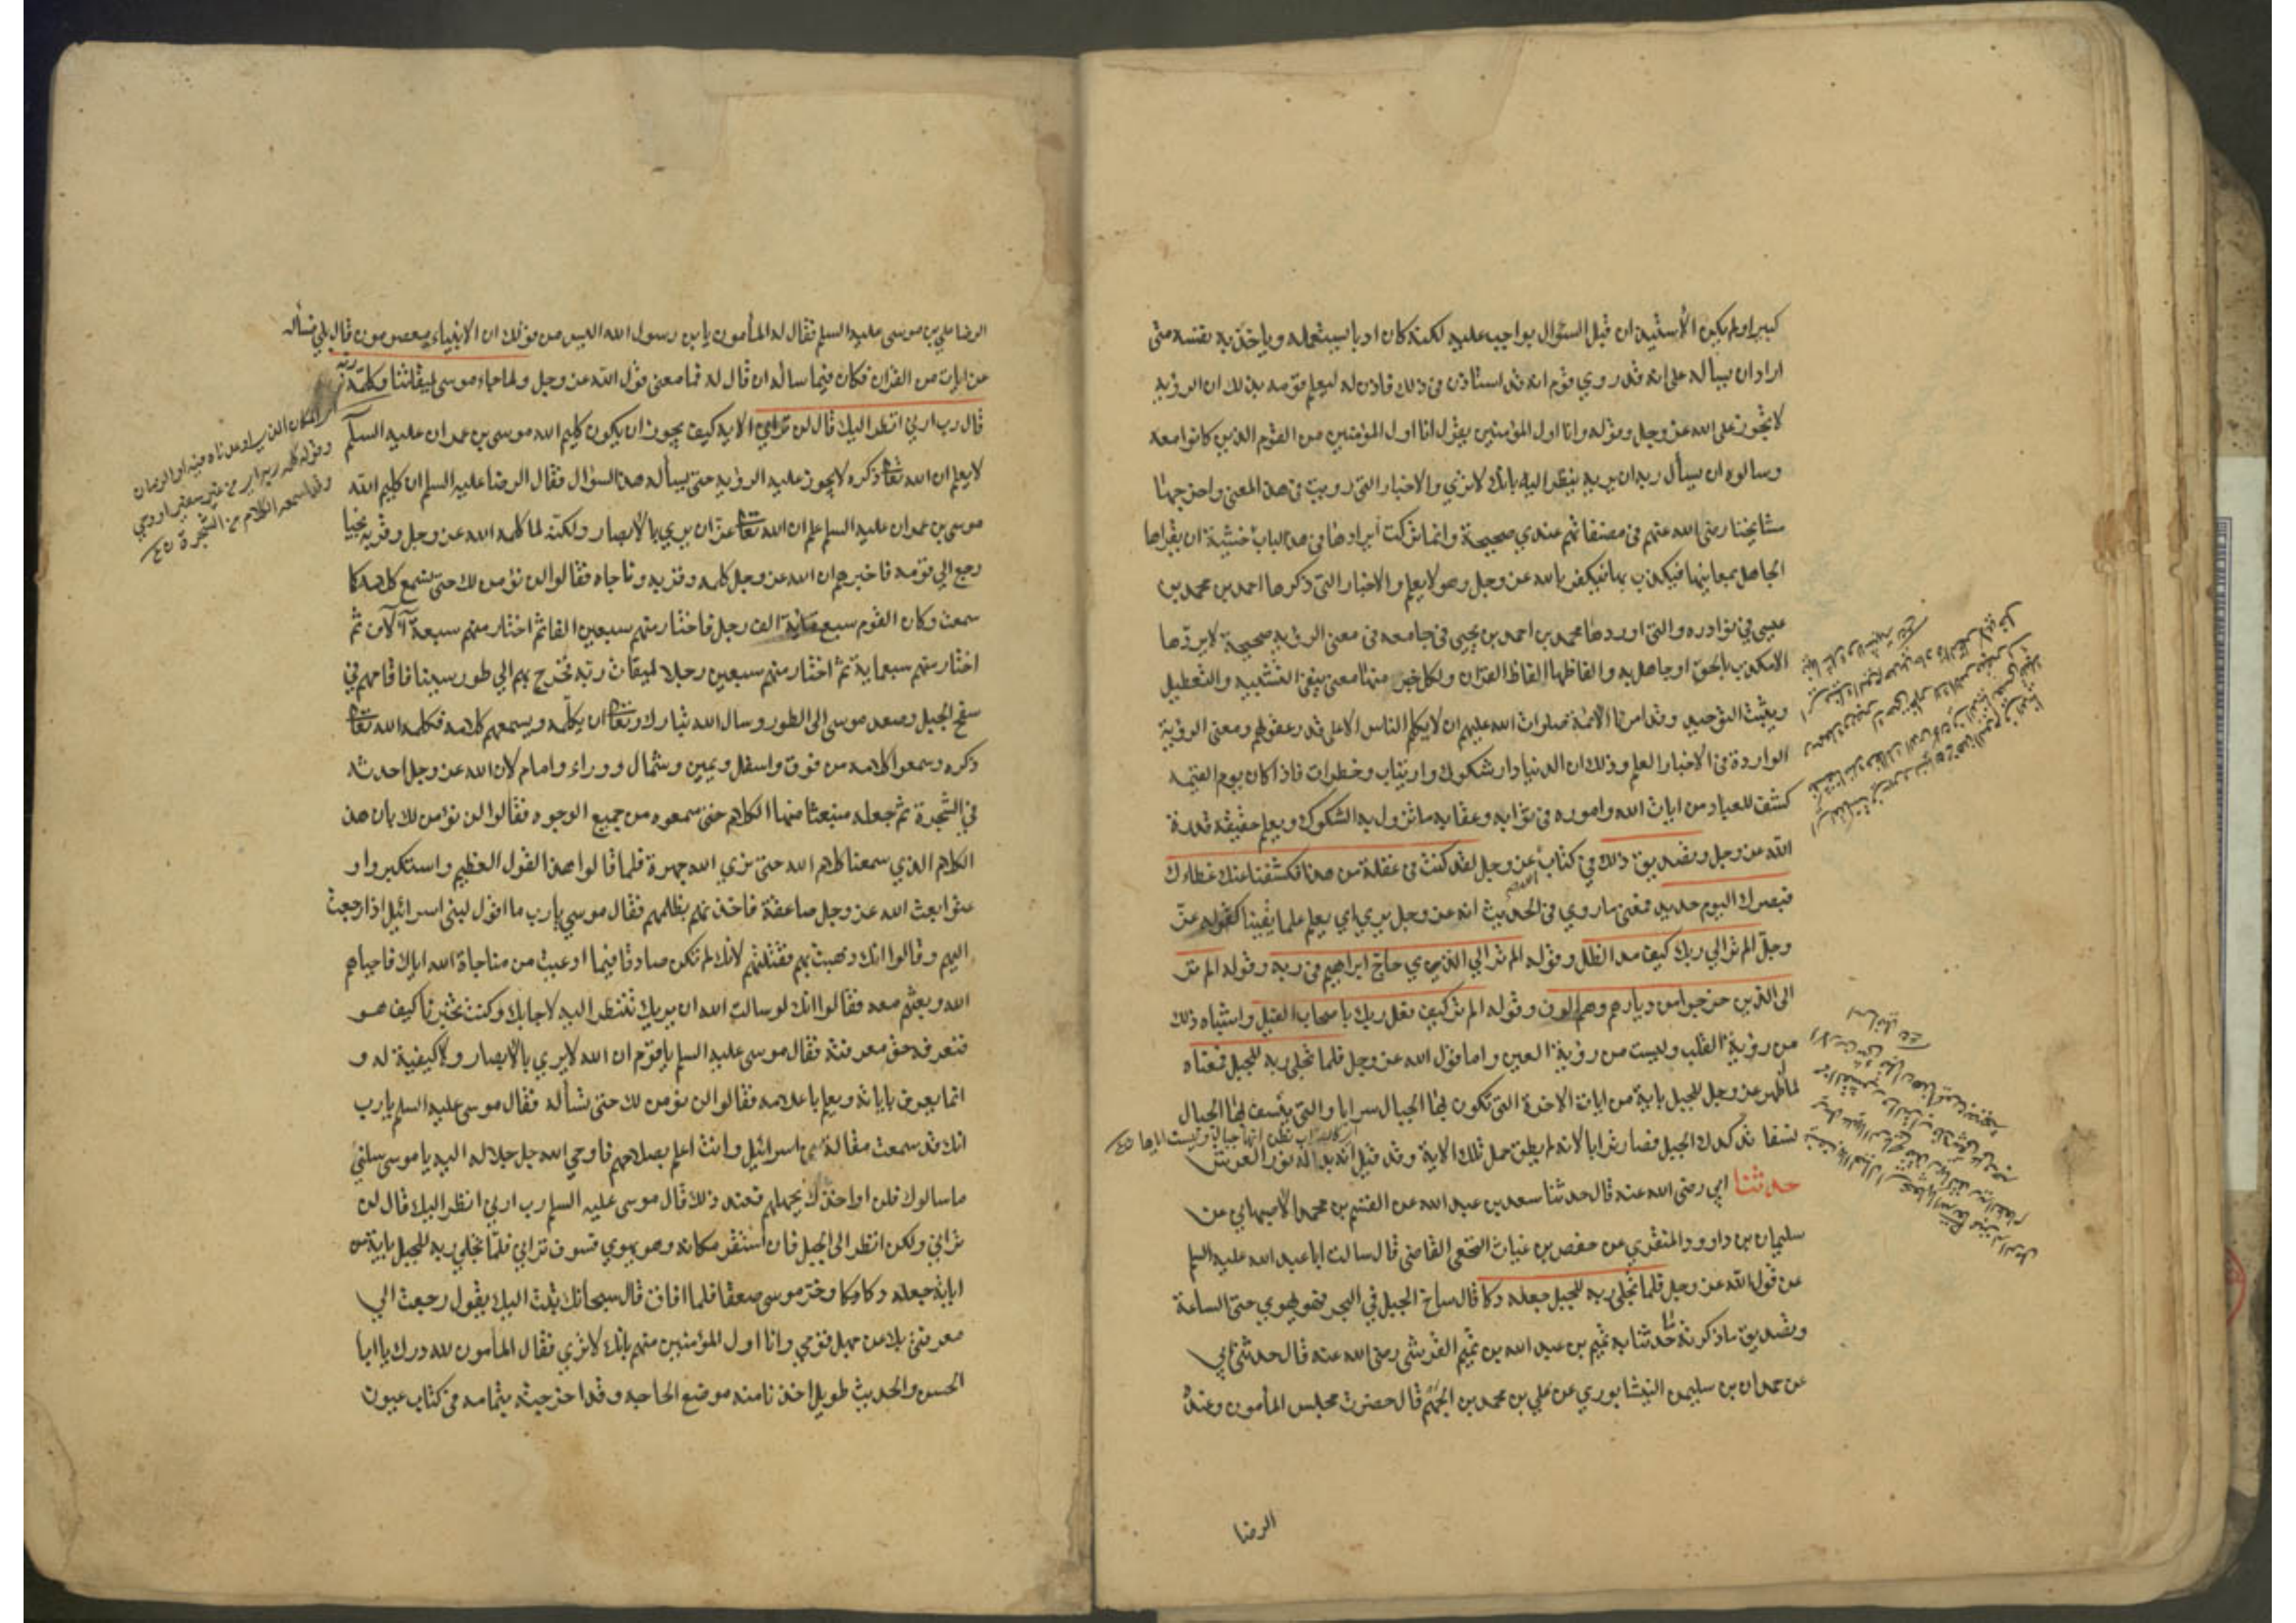 كبيرا ولم يكن الأستيذان قبل السئوال بواجب عليه لكنه كان ادبا يستعمله وياخذ به نفسه متى
اراد ان يساله على انه قد روي قوم انه قد استاذن في ذلك فاذن له ليعلم قومه بذلك ان الرؤية
لا تجوز على الله عز وجل وقوله وانا اول المؤمنين يقول انا اول المؤمنين من القوم الذين كانوا معه
وسالوه ان يسأل ربه ان يريه ينظر اليه بانك لا ترى والاخبار التي رويت في هذا المعنى واخرجها
مشايخنا رضى الله عنهم في مصنفاتهم عندي صحيحة وانما تركت ايرادها في هذا الباب خشية ان يقراها
الجاهل بمعانيها فيكذب بها فيكفر بالله عز وجل وهو لا يعلم والاخبار التي ذكرها احمد بن محمد بن
عيسى في نوادره والتي اوردها محمد بن احمد بن يحيى في جامعه في معنى الرؤيه صحيحة لا يردها
الا مكذب بالحق او جاهل به والفاظها الفاظ القران ولكل خبر منها معنى ينفي التشبيه والتعطيل
ويثبت التوحيد وقد امرنا الائمة صلوات الله عليهم ان لا نكلم الناس الا على قدر عقولهم ومعنى الرؤية
الواردة في الاخبار العلم وذلك ان الدنيا دار شكوك وارتياب وخطرات فاذا كان يوم القيمه
كشف للعباد من ايات الله واموره في ثوابه وعقابه ما تزول به الشكوك ويعلم حقيقه قدرة
الله عز وجل وتصديق ذلك في كتاب عز وجل لقد كنت في غفلة من هذا فكشفنا عنك غطاءك
فبصرك اليوم حديد فمعنى ما روي في الحديث انه عز وجل يرى اي يعلم علما يقينا كقوله عز
وجل الم تر الى ربك كيف مد الظل وقوله الم تر الى الذي حاج ابراهيم في ربه وقوله الم تر
الى الذين خرجوا من ديارهم وهم الوف وقوله الم تر كيف فعل ربك باصحاب الفيل واشباه ذلك
من رؤية القلب وليست من رؤية العين واما قول الله عز وجل فلما تجلى ربه للجبل فمعناه
لما ظهر عز وجل للجبل باية من ايات الاخرة التي تكون بها الجبال سرابا والتي ينسف بها الجبال
نسفا تدكدك الجبل فصار ترابا لانه لم يطق حمل تلك الاية وقد قيل انه بدا له نور العرش
حدثنا ابي رضى الله عنه قال حدثنا سعد بن عبد الله عن القسم بن محمد الاصبهاني عن
سليمان بن داوود المنقري عن حفص بن غياث النخعى القاضى قال سالت ابا عبد الله عليه السلم
عن قول الله عز وجل فلما تجلى ربه للجبل جعله دكا قال ساخ الجبل في البحر فهو يهوي حتى الساعة
وتصديق ما ذكرته حدثنا به تميم بن عبد الله بن تميم القرشى رضى الله عنه قال حدثني ابي
عن حمدان بن سليمن النيشابوري عن علي بن محمد بن الجهم قال حضرت مجلس المأمون وعنده
الرضا
الرضا علي بن موسى عليه السلم فقال له المأمون يا بن رسول الله اليس من قولك ان الانبياء معصومون قال بلى فسأله
عن ايات من القران فكان فيما ساله ان قال له فما معنى قول الله عز وجل ولما جاء موسى لميقاتنا وكلمه ربه
قال رب ارني انظر اليك قال لن تراني الاية كيف يجوز ان يكون كليم الله موسى بن عمران عليه السلم
لا يعلم ان الله تعالى ذكره لا يجوز عليه الرؤية حتى يسأله هذا السؤال فقال الرضا عليه السلم ان كليم الله
موسى بن عمران عليه السلم علم ان الله تعالى عز ان يرى بالابصار ولكنه لما كلمه الله عز وجل وقربه نجيا
رجع الى قومه فاخبرهم ان الله عز وجل كلمه وقربه وناجاه فقالوا لن نؤمن لك حتى نسمع كلامه كما
سمعت وكان القوم سبع مائة الف رجل فاختار منهم سبعين الفا ثم اختار منهم سبعة آلاف ثم
اختار منهم سبعماية ثم اختار منهم سبعين رجلا لميقات ربه فخرج بهم الى طور سينا فاقامهم في
سفح الجبل وصعد موسى الى الطور وسال الله تبارك وتعالى ان يكلمه ويسمعهم كلامه فكلمه الله تعالى
ذكره وسمعوا كلامه من فوق واسفل ويمين وشمال ووراء وامام لان الله عز وجل احدثه
في الشجرة ثم جعله منبعثا منها الكلام حتى سمعوه من جميع الوجوه فقالوا لن نؤمن لك بان هذا
الكلام الذي سمعنا كلام الله حتى نرى الله جهرة فلما قالوا هذا القول العظيم واستكبروا و
عتوا بعث الله عز وجل صاعقة فاخذتهم بظلمهم فقال موسى يارب ما اقول لبنى اسرائيل اذا رجعت
اليهم وقالوا انك ذهبت بهم فقتلتهم لانك لم تكن صادقا فيما ادعيت من مناجاة الله اياك فاحياهم
الله وبعثهم معه فقالوا انك لو سالت الله ان يريك تنظر اليه لاجابك وكنت تخبرنا كيف هو
فنعرفه حق معرفته فقال موسى عليه السلم يا قوم ان الله لا يرى بالابصار ولا كيفية له و
انما يعرف باياته ويعلم باعلامه فقالوا لن نؤمن لك حتى تسأله فقال موسى عليه السلم يارب
انك قد سمعت مقالة بنى اسرائيل وانت اعلم بصلاحهم فاوحى الله جل جلاله اليه يا موسى سلنى
ما سالوك فلن اواخذك بجهلهم فعند ذلك قال موسى عليه السلم رب ارني انظر اليك قال لن
تراني ولكن انظر الى الجبل فان استقر مكانه وهو يهوي فسوف تراني فلما تجلى ربه للجبل باية من
اياته جعله دكا وخر موسى صعقا فلما افاق قال سبحانك تبت اليك يقول رجعت الى
معرفتى بك عن جهل قومي وانا اول المؤمنين منهم بانك لا ترى فقال المأمون لله درك يا ابا
الحسن والحديث طويل اخذنا منه موضع الحاجه وقد اخرجته بتمامه في كتاب عيون